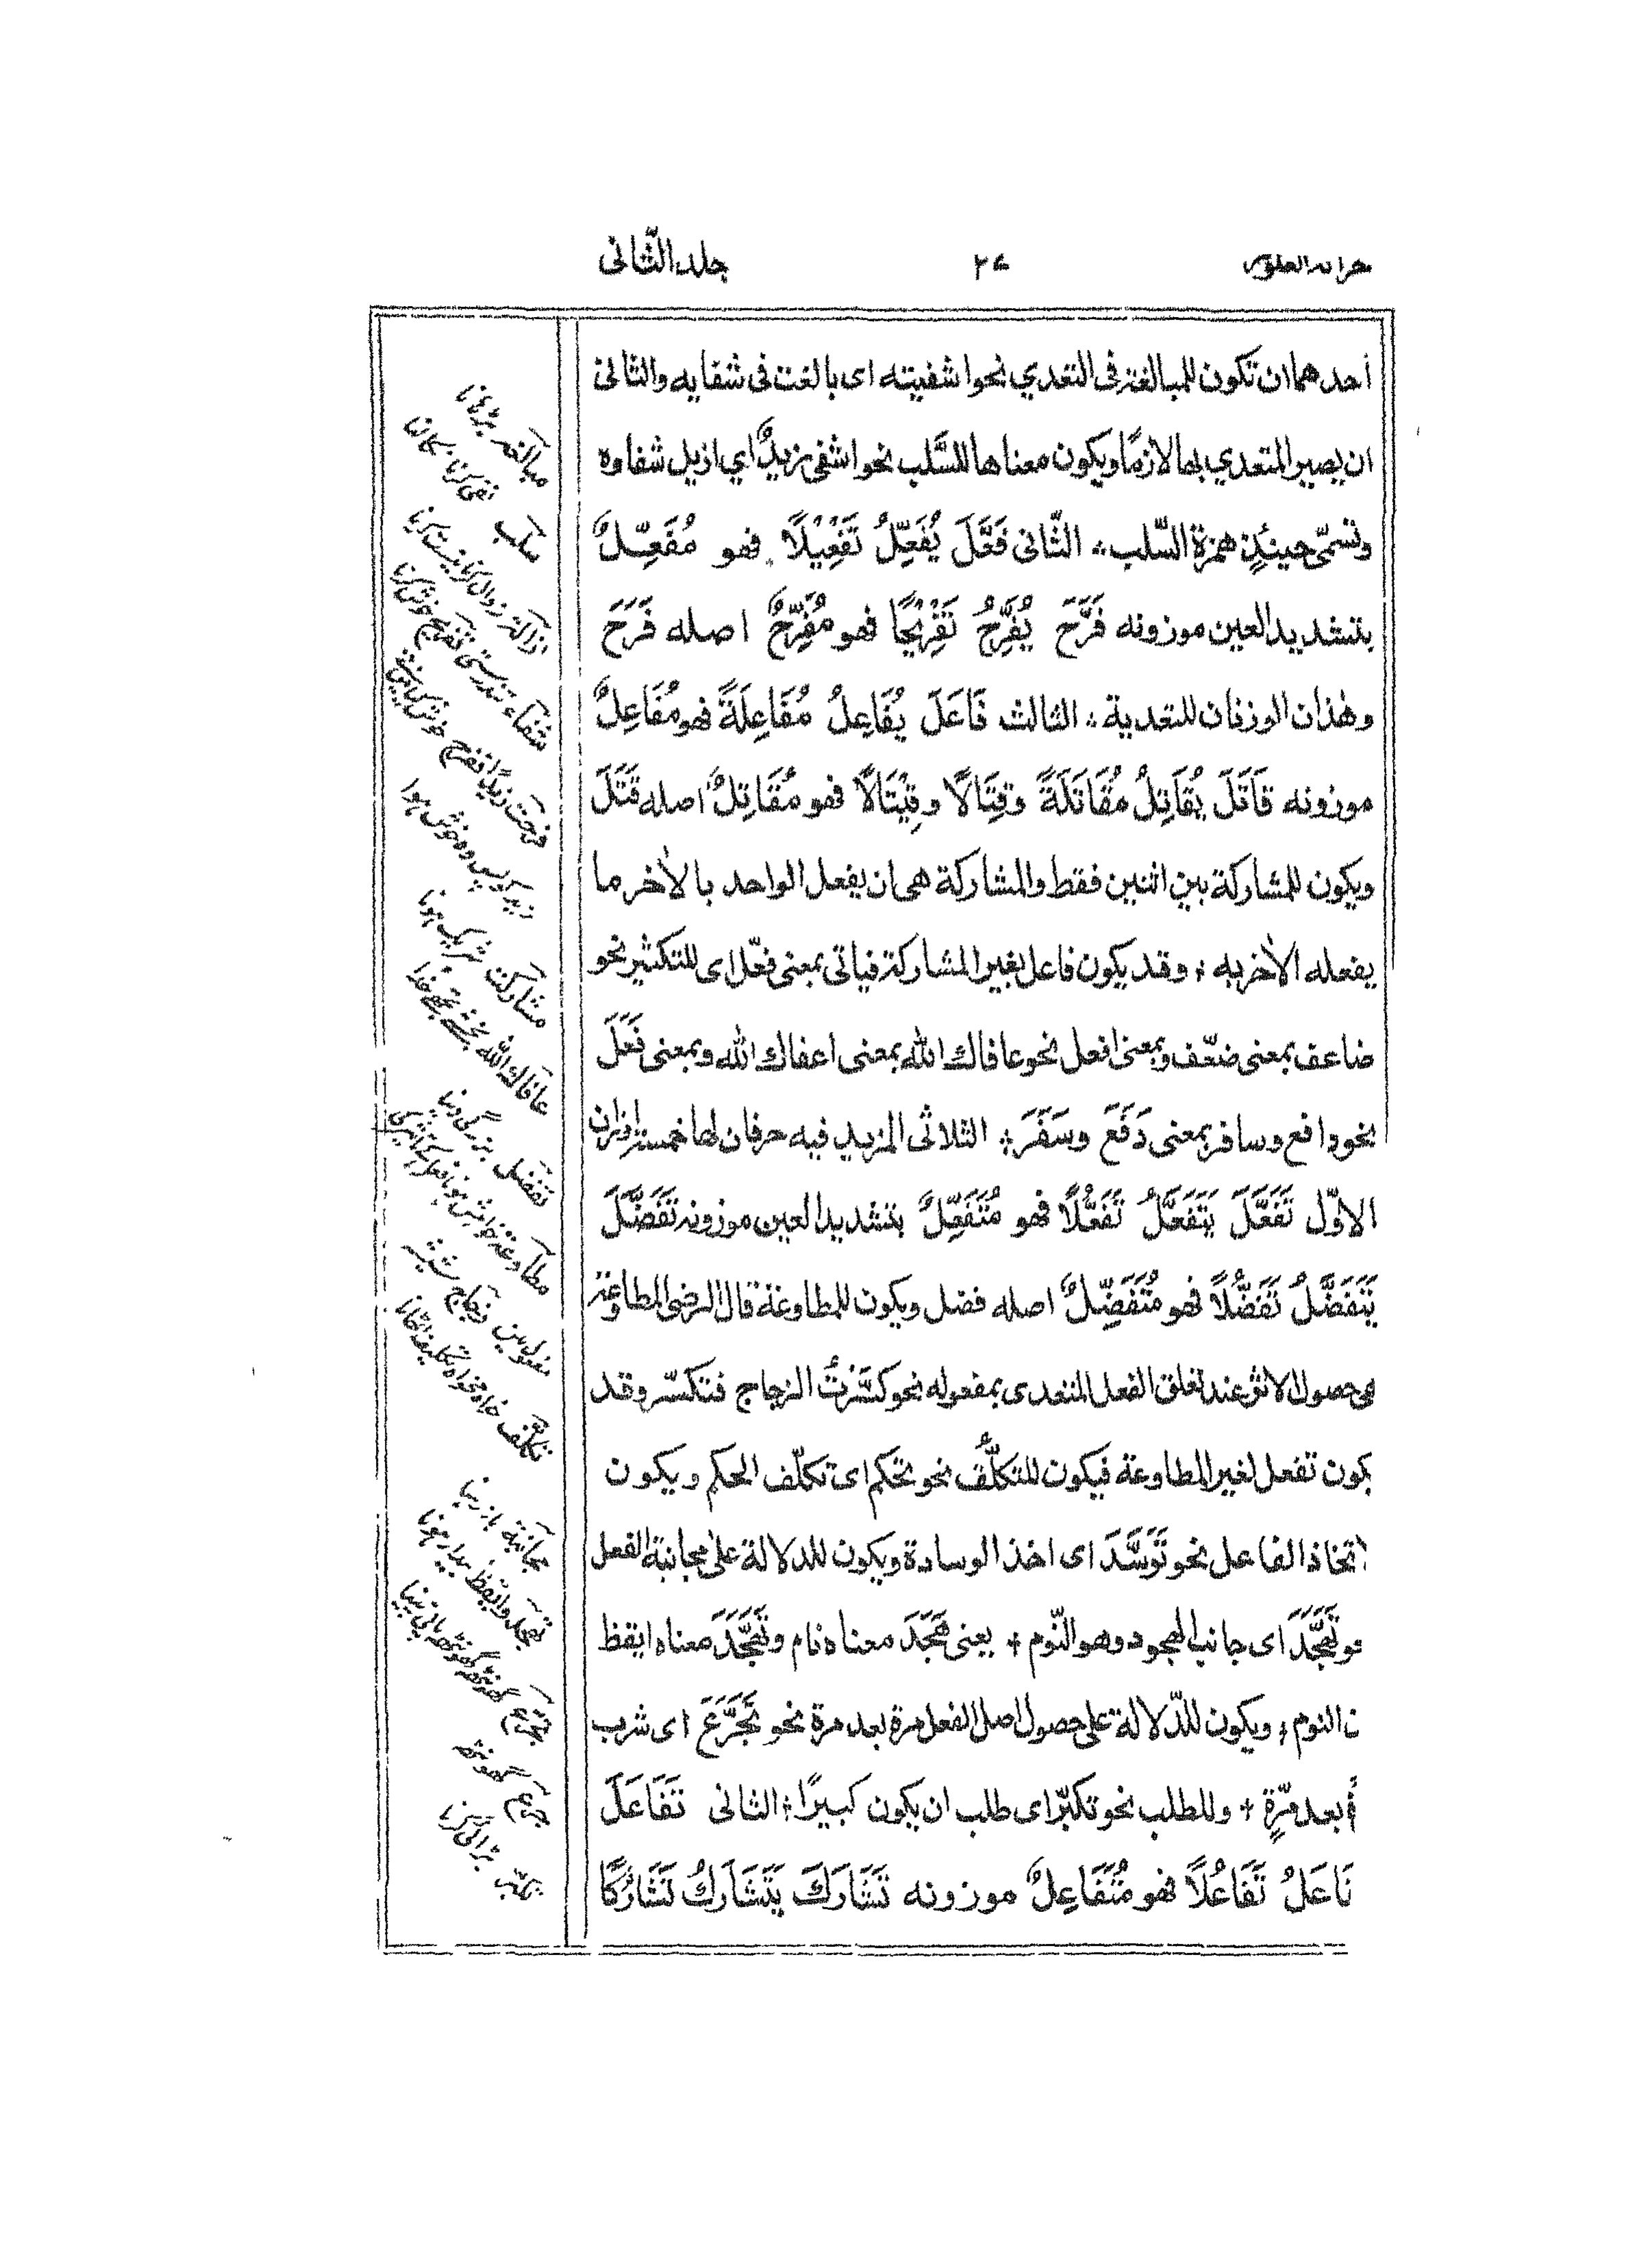 جلد الثّانی
احدهما ان تكون للمبالغة فی التعدي نحو اشفيته ای بالغت فی شفايه والثانی
ان يصير المتعدي بها لازمًا ويكون معناها للسَّلب نحو اشفی زيدٌ اي ازيل شفاوه
وتسمّی حينئذٍ همزة السّلب ؞ الثّانی فَعَّلَ يُفَعِّلُ تَفْعِيْلًا فهو مُفَعِّلٌ
بتشديد العين موزونه فَرَّحَ يُفَرِّحُ تَفْرِيْحًا فهو مُفَرِّحٌ اصله فَرَحَ
وهٰذان الوزنان للتعدية ؞ الثالث فَاعَلَ يُفَاعِلُ مُفَاعِلَةً فهو مُفَاعِلٌ
موزونه قَاتَلَ يُقَاتِلُ مُقَاتَلَةً وقِتَالًا وقِيْتَالًا فهو مُقَاتِلٌ اصله قَتَلَ
ويكون للمشاركة بين اثنين فقط والمشاركة هی ان يفعل الواحد بالاٰخر ما
يفعله الاٰخر به ؞ وقد يكون فاعل لغير المشاركة فياتی بمعنی فعّل ای للتكثير نحو
ضاعف بمعنی ضعّف وبمعنی افعل نحو عافاك الله بمعنی اعفاك الله وبمعنی فَعَلَ
نحو دافع وسافر بمعنی دَفَعَ وسَفَرَ ؞ الثلاثی المزيد فيه حرفان لها خمسة اوزان
الاوّل تَفَعَّلَ يَتَفَعَّلُ تَفَعُّلًا فهو مُتَفَعِّلٌ بتشديد العين موزونه تَفَضَّلَ
يَتَفَضَّلُ تَفَضُّلًا فهو مُتَفَضِّلٌ اصله فضل ويكون للمطاوعة قال الرضی المطاوعة
هی حصول الاثر عند تعلق الفعل المتعدی بمفعوله نحو كَسَّرْتُ الزجاج فتكسّر وقد
يكون تفعل لغير المطاوعة فيكون للتكلُّف نحو تحكم ای تكلّف الحكم ويكون
لاتخاذ الفاعل نحو تَوَسَّدَ ای اخذ الوسادة ويكون للدلالة علی مجانبة الفعل
نحو تَهَجَّدَ ای جانب الهجود وهو النّوم + يعنی هَجَدَ معناه نام وتَهَجَّدَ معناه ايقظ
ن النوم ؞ ويكون للدّلالة علی حصول اصل الفعل مرة بعد مرة نحو تَجَرَّعَ ای شرب
بعد مرّةٍ + وللطلب نحو تكبّر ای طلب ان يكون كبيرًا ؞ الثانی تَفَاعَلَ
فَاعَلُ تَفَاعُلًا فهو مُتَفَاعِلٌ موزونه تَشَارَكَ يَتَشَارَكُ تَشَارُكًا
مبالغہ بڑھانا
سلب نفی کرنا نکالنا
فرحت زیدًا ففرح
زید کو پس وہ خوش ہوا
مشارکت شریک ہونا
تفضل بزرگی دینا
مجانبة باز رہنا
تجرّع گھونٹ گھونٹ پانی پینا
جرع گھونٹ
تکبّر بڑائی کرنا